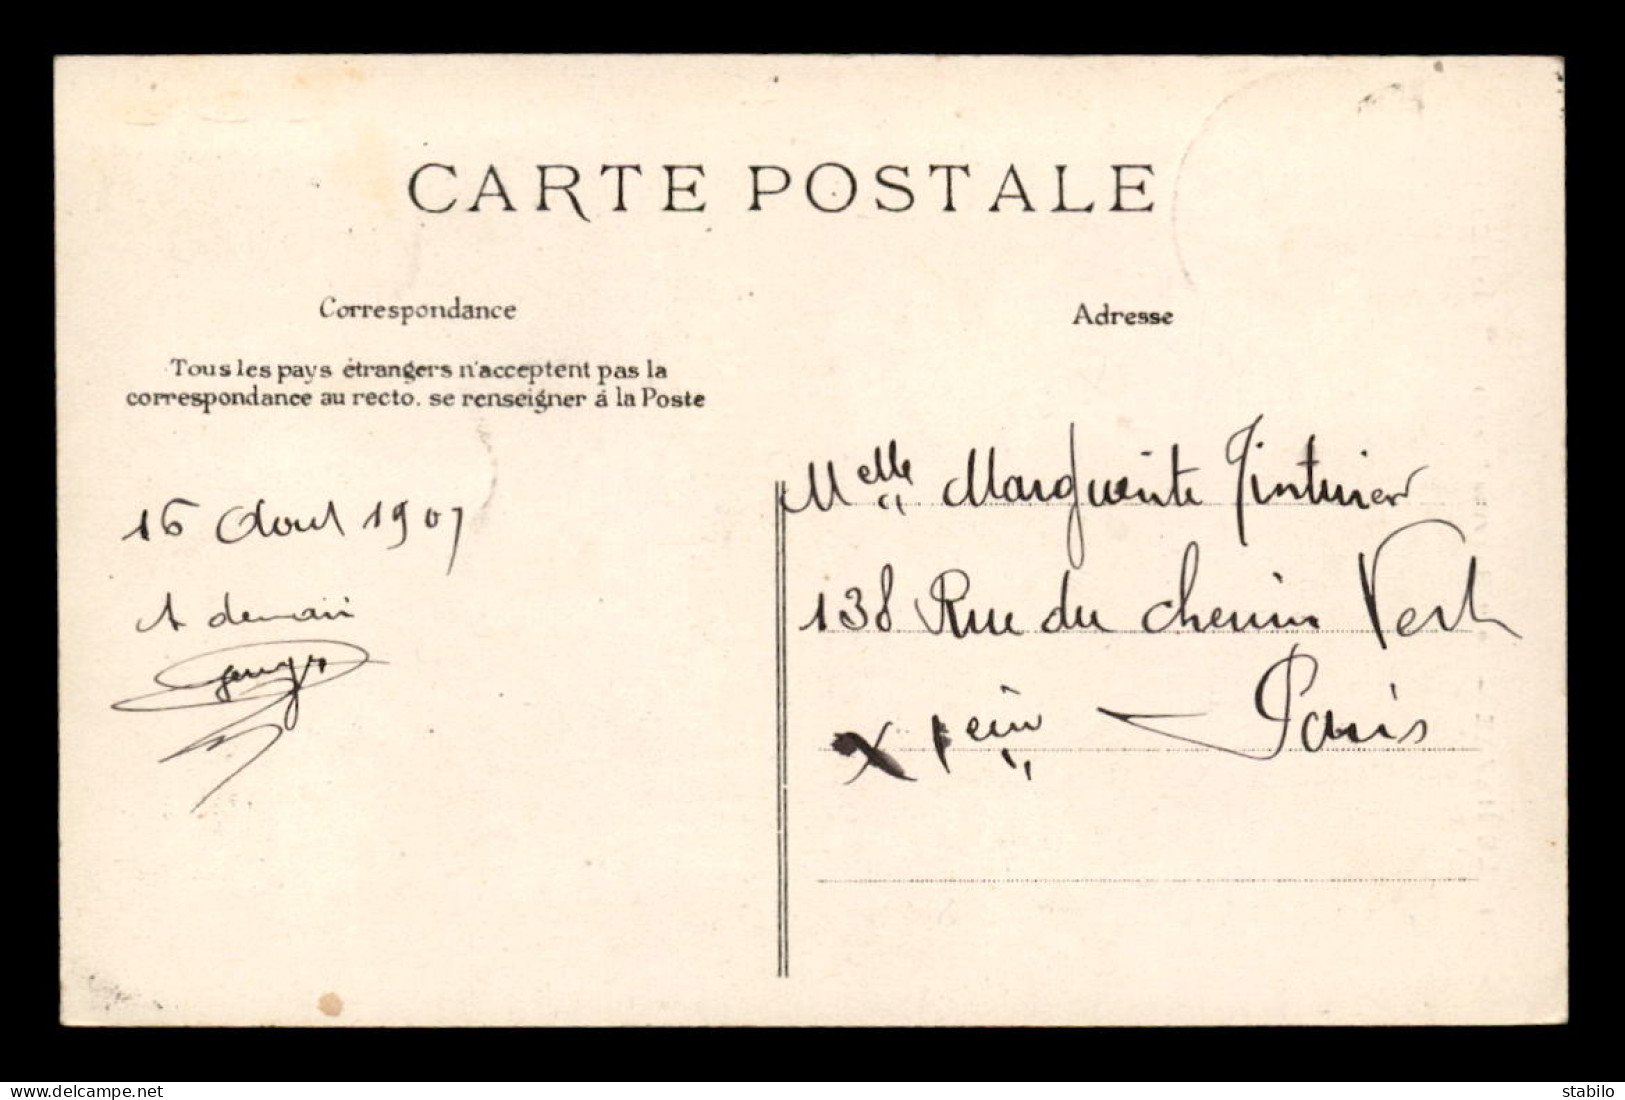 CARTE POSTALE
Correspondance
Tous les pays étrangers n'acceptent pas la
correspondance au recto. se renseigner á la Poste
16 Aout 1907
A demain
Adresse
Melle Marguerite
138 Rue du Chemin Vert
XIeme — Paris
delcampe.net
stabilo